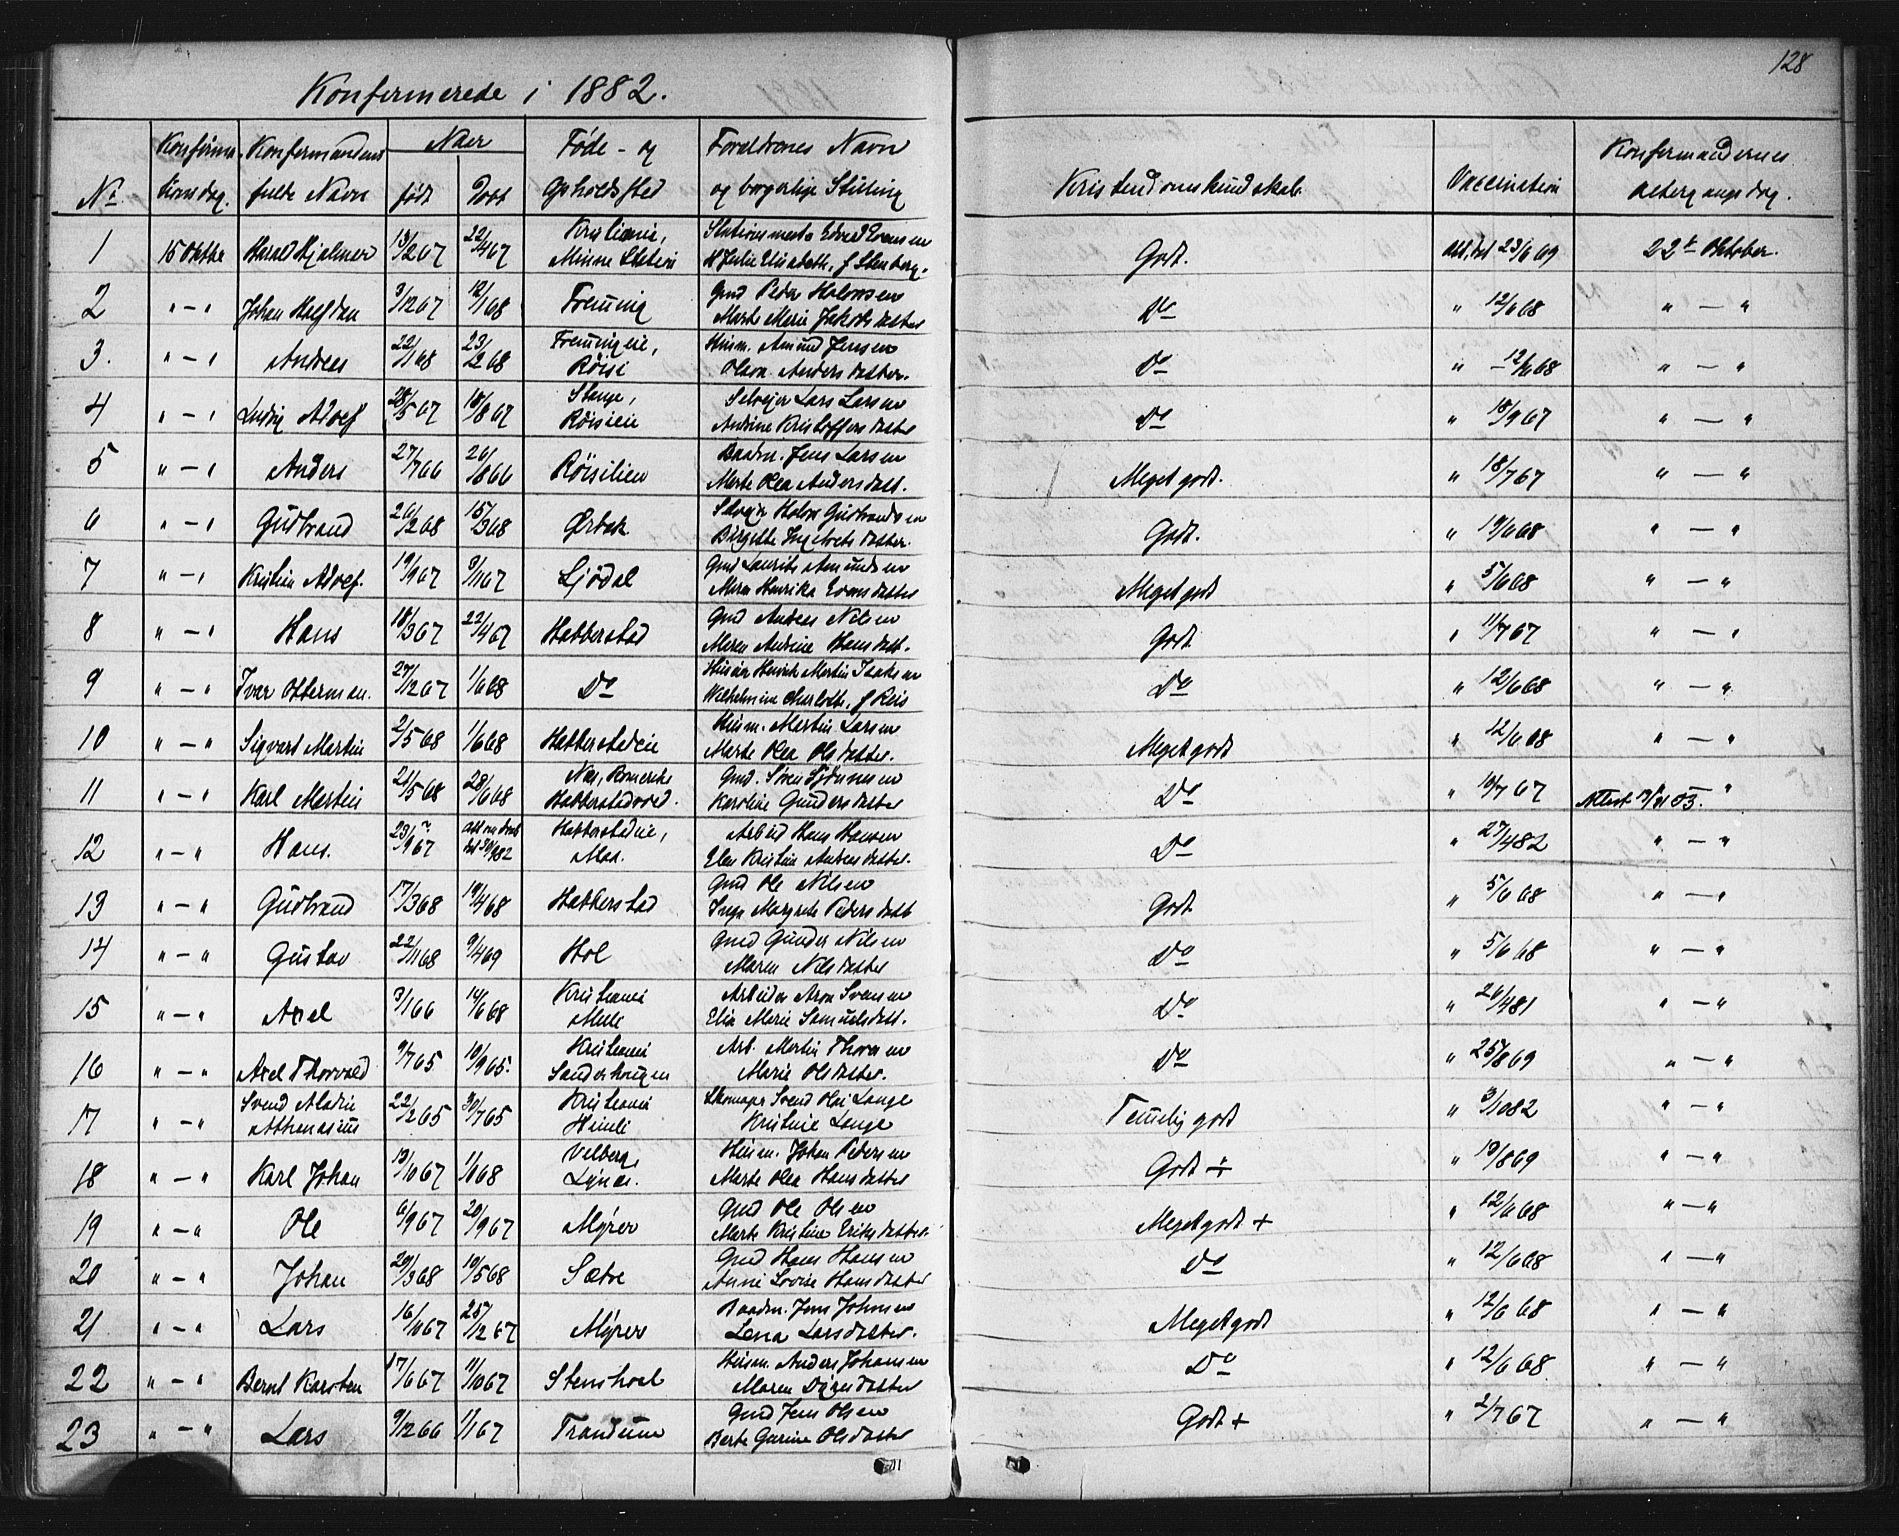 128
Konfermerede i 1882.
No. Konfirmationsdag. Konfermandens fulde Navn Naar født Døbt Føde- og Opholdssted Foreldrenes Navn og borgerlige Stilling Kristendomskundskab. Vaccination Konfermandernes altergangsdag.
1 15 Oktbr Harald Hjalmar 13/2 67 22/4 67 Kristiania, Minne Station Stationsmester Edvard Evensen Julie Elisabeth, f Stenberg. Godt. Att. dat 23/6 69 22de Oktober.
2 " – " Johan Halfdan 3/12 67 12/1 68 Fremming Gmd Peder Halvorsen Marte Marie Jakobsdatter Do " 12/6 68 " – "
3. " – " Andreas 22/1 68 23/2 68 Fremmingeie, Røisi Husm. Amund Jensen Oleon. Andersdatter. Do " 12/6 68 " – "
4 " – " Ludvig Adolf 28/5 67 18/8 67 Stange, Røisieie Selveier Lars Larsen Andrine Kristoffersdatter Do " 18/9 67 " – "
5 " – " Anders 27/7 66 26/8 66 Røisilien Baadm. Jens Larsen Marte Olea Andersdatt. Meget godt. " 18/7 67 " – "
6 " – " Gudbrand 26/12 68 15/3 68 Ørbak Selveier Halvor Gudbrandsen Birgitte Ingebretsdatter. Godt. " 19/6 68 " – "
7 " – " Kristian Adolf. 19/9 67 3/11 67 Ljødal Gmd Laurits Amundsen Maren Henrika Evensdatter Meget godt " 5/6 68 " – "
8 " – " Hans 18/3 67 22/4 67 Habberstad Gmd Andreas Nilsen Maren Andrine Hansdatt. Godt. " 11/7 67 " – "
9 " – " Ivar Otterman. 27/12 67 1/6 68 Do Henrik Martin Isaksen Wilhelmine Charlotte, f Reis Do " 12/6 68 " – "
10 " – " Sigvart Martin 2/5 68 1/6 68 Habberstadeie Husm. Martin Larsen Marte Olea Olsdatter. Meget godt " 12/6 68 " – "
11 " – " Karl Martin 21/5 68 28/6 68 Nes, Romerike Habberstadvold. Gmd. Karoline Gundersdatter Do " 19/7 67 " – "
12 " – " Hans. 23/9 67 Habberstadeie, Moa. Arbeid Hans Hansen Elen Kristin Andersdatter. Do " 27/4 82 " – "
13 " – " Gudbrand 17/3 68 19/4 68 Habberstad Gmd Ole Nilsen Inger Margrete Pedersdatt Godt " 5/6 68 " – "
14 " – " Gustav 22/11 68 9/4 69 Hol Gmd Gunder Nilsen Maren Nilsdatter Do " 5/6 68 " – "
15 " – " Axel 3/1 66 14/6 68 Kristiania Meli Arbeider Aron Svensen Elia Marie Samuelsdatt. Do " 26/4 81 " – "
16 " – " Axel Thorvald 9/7 65 10/9 65. Kristiania Sanderhougen Arb. Martin Thorsen Marie Olsdatter. Do " 25/8 69 " – "
17 " – " Svend Aladin Athanasius 22/2 65 30/7 65 Kristiania Himli Skomager Svend Olai Lange Kristine Lange Temmelig godt " 3/10 82 " – "
18 " – " Karl Johan 13/10 67 1/10 68 Velberg, Lynæs. Husm. Johan Pedersen Marte Olea Hansdatter Godt ÷ " 19/8 69 " – "
19 " – " Ole 6/9 67 20/9 67 Myrer Gmd Ole Olsen Marte Kristine Eriksdatter. Meget godt + " 12/6 68 " – "
20 " – " Johan 20/3 68 10/5 68 Sætre Gmd Hans Hansen Anne Lovise Hansdatter Do " 12/6 68 " – "
21 " – " Lars 16/10 67 25/12 67 Myrer Baadm. Jens Johnsen Lena Larsdatter. Meget godt " 12/6 68 " – "
22 " – " Bernt Karsten 17/6 67 11/10 67 Stenshoel Husm. Anders Johansen Maren Do " 12/6 68 " – "
23 " – " Lars 9/12 66 1/1 67 Trandum Gmd Jens Olsen Berte Gurine Olsdatter Godt + " 2/7 67 " – "